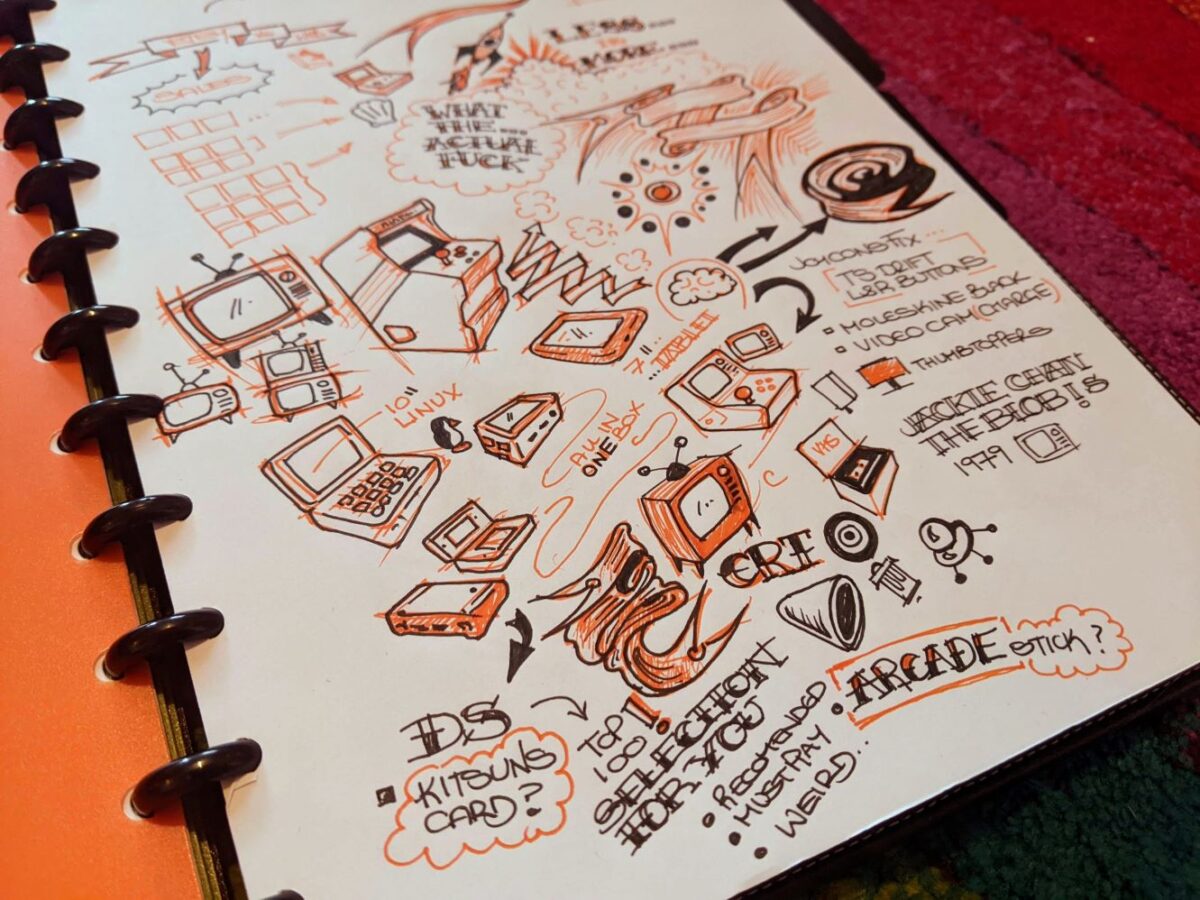 SALES
LESS...
MORE...
WHAT
THE...
ACTUAL
FUCK
JOYCONS FIX...
TS DRIFT
L&R BUTTONS
MOLESKINE BACK
VIDEO CAM (CHARGE)
THUMBTOPPERS
7"...
...TABLET
10"
LINUX
ALL IN
ONE BOX
JACKIE CHAN
THE BLOB!S
1979
VHS
CRT
ARCADE STICK?
DS
KITSUNS
CARD?
TOP
100
SELECTION
FOR YOU
RECOMENDED
MUST PAY
WEIRD..